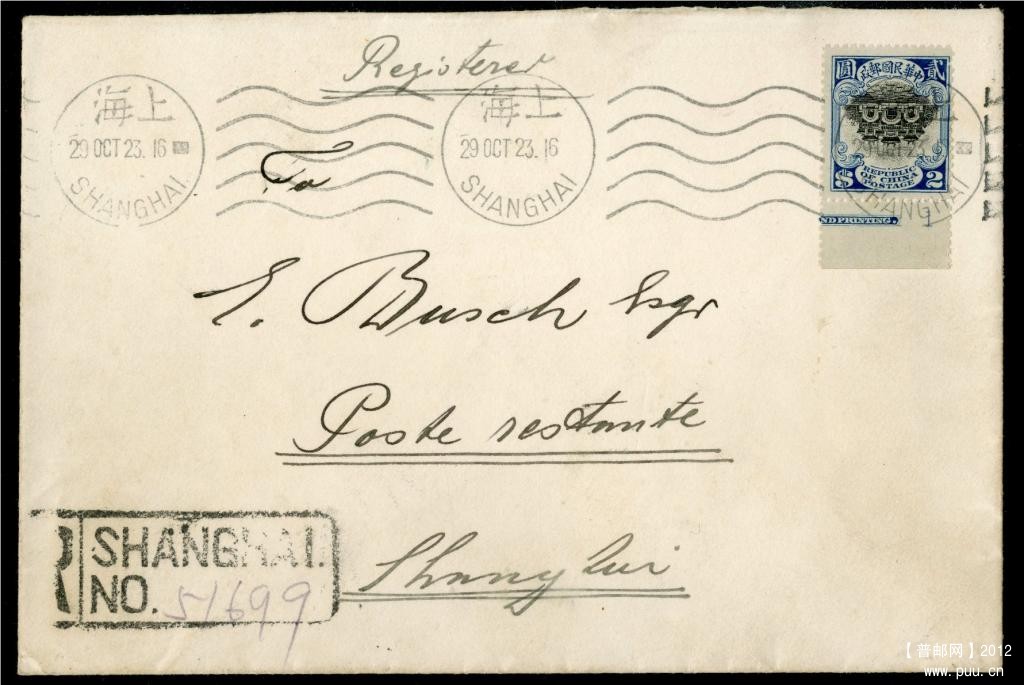 Registered
上海
29 OCT 23. 16
SHANGHAI
上海
29 OCT 23. 16
SHANGHAI
圓 政郵國民華中 貳
29 OCT 23
REPUBLIC
OF CHINA
POSTAGE
$ 2
SHANGHAI
ND PRINTING. 1
To
E. Busch Esqr
Poste restante
Shanghai
R SHANGHAI.
NO. 51699
【普邮网】2012
www.puu.cn